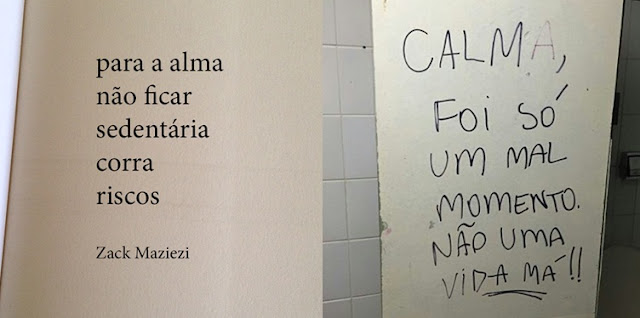 para a alma
não ficar
sedentária
corra
riscos
Zack Maziezi
CALMA,
FOI SÓ
UM MAL
MOMENTO.
NÃO UMA
VIDA MÁ!!